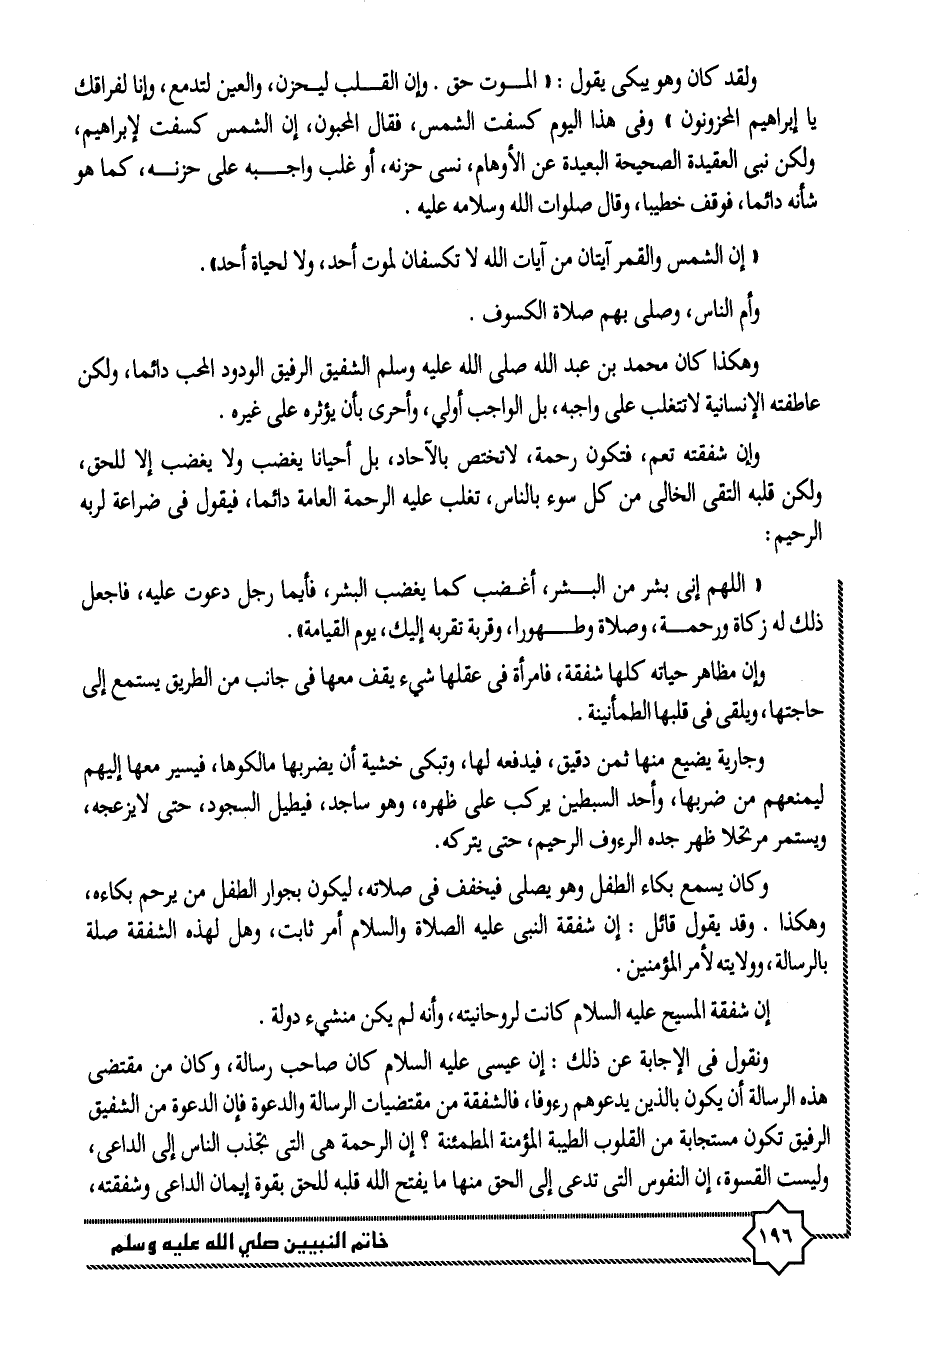 ولقد كان وهو يبكى يقول : « الموت حق . وإن القلب ليحزن، والعين لتدمع، وإنا لفراقك
يا إبراهيم لمحزونون » وفى هذا اليوم كسفت الشمس، فقال المحبون، إن الشمس كسفت لإبراهيم،
ولكن نبى العقيدة الصحيحة البعيدة عن الأوهام، نسى حزنه، أو غلب واجبه على حزنه، كما هو
شأنه دائما، فوقف خطيبا، وقال صلوات الله وسلامه عليه .
« إن الشمس والقمر آيتان من آيات الله لا تكسفان لموت أحد، ولا لحياة أحد» .
وأم الناس، وصلى بهم صلاة الكسوف .
وهكذا كان محمد بن عبد الله صلى الله عليه وسلم الشفيق الرفيق الودود المحب دائما، ولكن
عاطفته الإنسانية لاتتغلب على واجبه، بل الواجب أولي، وأحرى بأن يؤثره على غيره .
وإن شفقته تعم، فتكون رحمة، لاتختص بالآحاد، بل أحيانا يغضب ولا يغضب إلا للحق،
ولكن قلبه التقى الخالى من كل سوء بالناس، تغلب عليه الرحمة العامة دائما، فيقول فى ضراعة لربه
الرحيم :
« اللهم إنى بشر من البشر، أغضب كما يغضب البشر، فأيما رجل دعوت عليه، فاجعل
ذلك له زكاة ورحمة، وصلاة وطهورا، وقربة تقربه إليك، يوم القيامة» .
وإن مظاهر حياته كلها شفقة، فامرأة فى عقلها شيء يقف معها فى جانب من الطريق يستمع إلى
حاجتها، ويلقى فى قلبها الطمأنينة .
وجارية يضيع منها ثمن دقيق، فيدفعه لها، وتبكى خشية أن يضربها مالكوها، فيسير معها إليهم
ليمنعهم من ضربها، وأحد السبطين يركب على ظهره، وهو ساجد، فيطيل السجود، حتى لايزعجه،
ويستمر مرتحلا ظهر جده الرءوف الرحيم، حتى يتركه.
وكان يسمع بكاء الطفل وهو يصلى فيخفف فى صلاته، ليكون بجوار الطفل من يرحم بكاءه،
وهكذا . وقد يقول قائل : إن شفقة النبى عليه الصلاة والسلام أمر ثابت، وهل لهذه الشفقة صلة
بالرسالة، وولايته لأمر المؤمنين .
إن شفقة المسيح عليه السلام كانت لروحانيته، وأنه لم يكن منشيء دولة .
ونقول فى الإجابة عن ذلك : إن عيسى عليه السلام كان صاحب رسالة، وكان من مقتضى
هذه الرسالة أن يكون بالذين يدعوهم رءوفا، فالشفقة من مقتضيات الرسالة والدعوة فإن الدعوة من الشفيق
الرفيق تكون مستجابة من القلوب الطيبة المؤمنة المطمئنة ؟ إن الرحمة هى التى تجذب الناس إلى الداعى،
وليست القسوة، إن النفوس التى تدعى إلى الحق منها ما يفتح الله قلبه للحق بقوة إيمان الداعى وشفقته،
خاتم النبيين صلي الله عليه وسلم
١٩٦